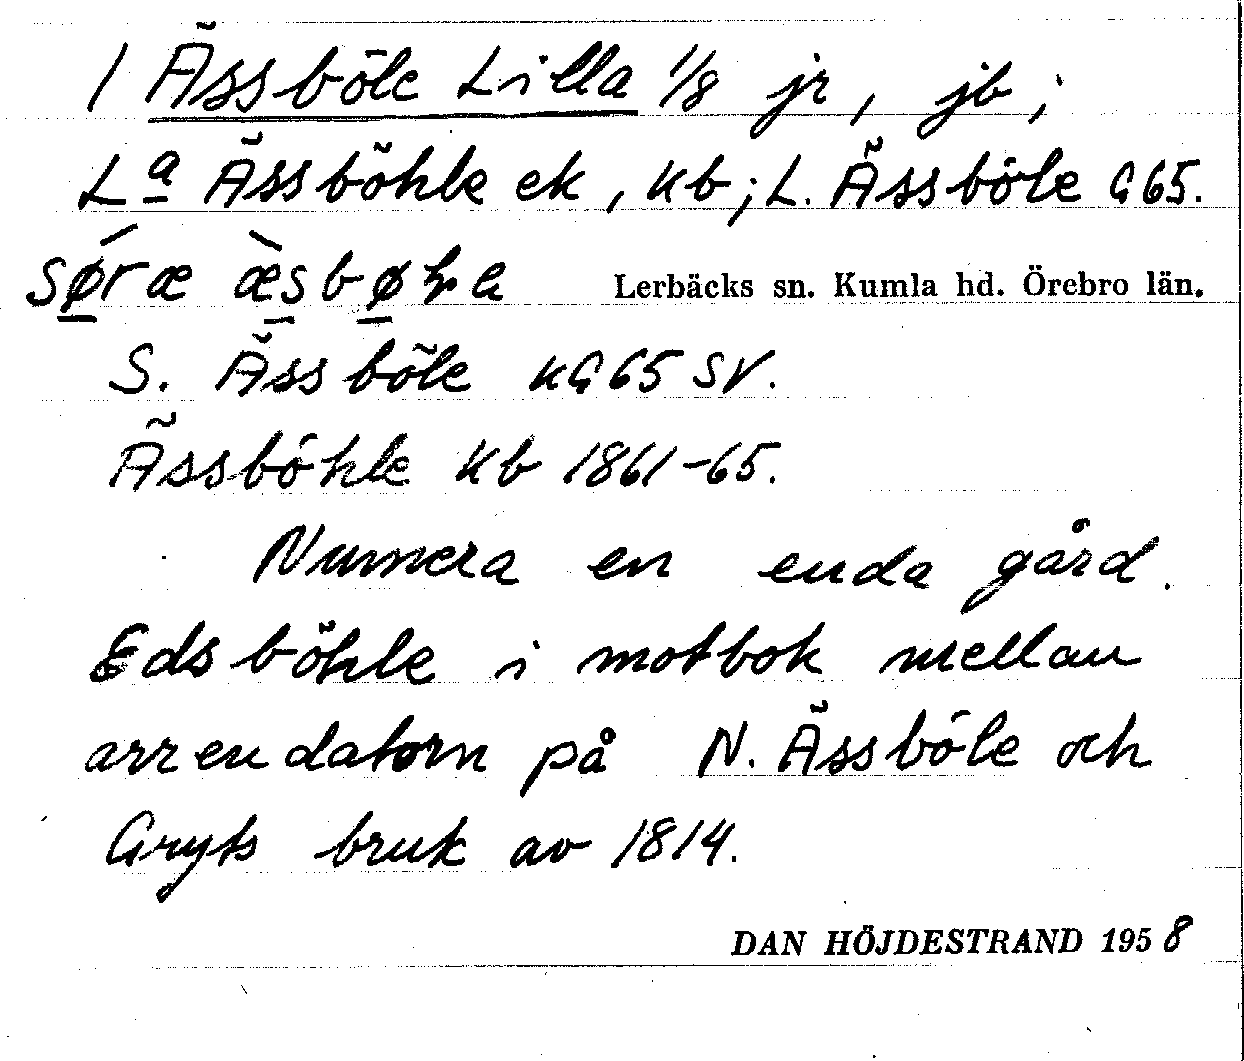 1 Ässböle Lilla 1/8 jr, jb;
La Ässböhle ek, kb; L. Ässböle G65.
søræ æsbøƕa Lerbäcks sn. Kumla hd. Örebro län.
S. Ässböle kG65 SV.
Ässböhle kb 1861-65.
Numera en enda gård.
Edsböhle i motbok mellan
arrendatorn på N. Ässböle och
Gryts bruk av 1814.
DAN HÖJDESTRAND 1958